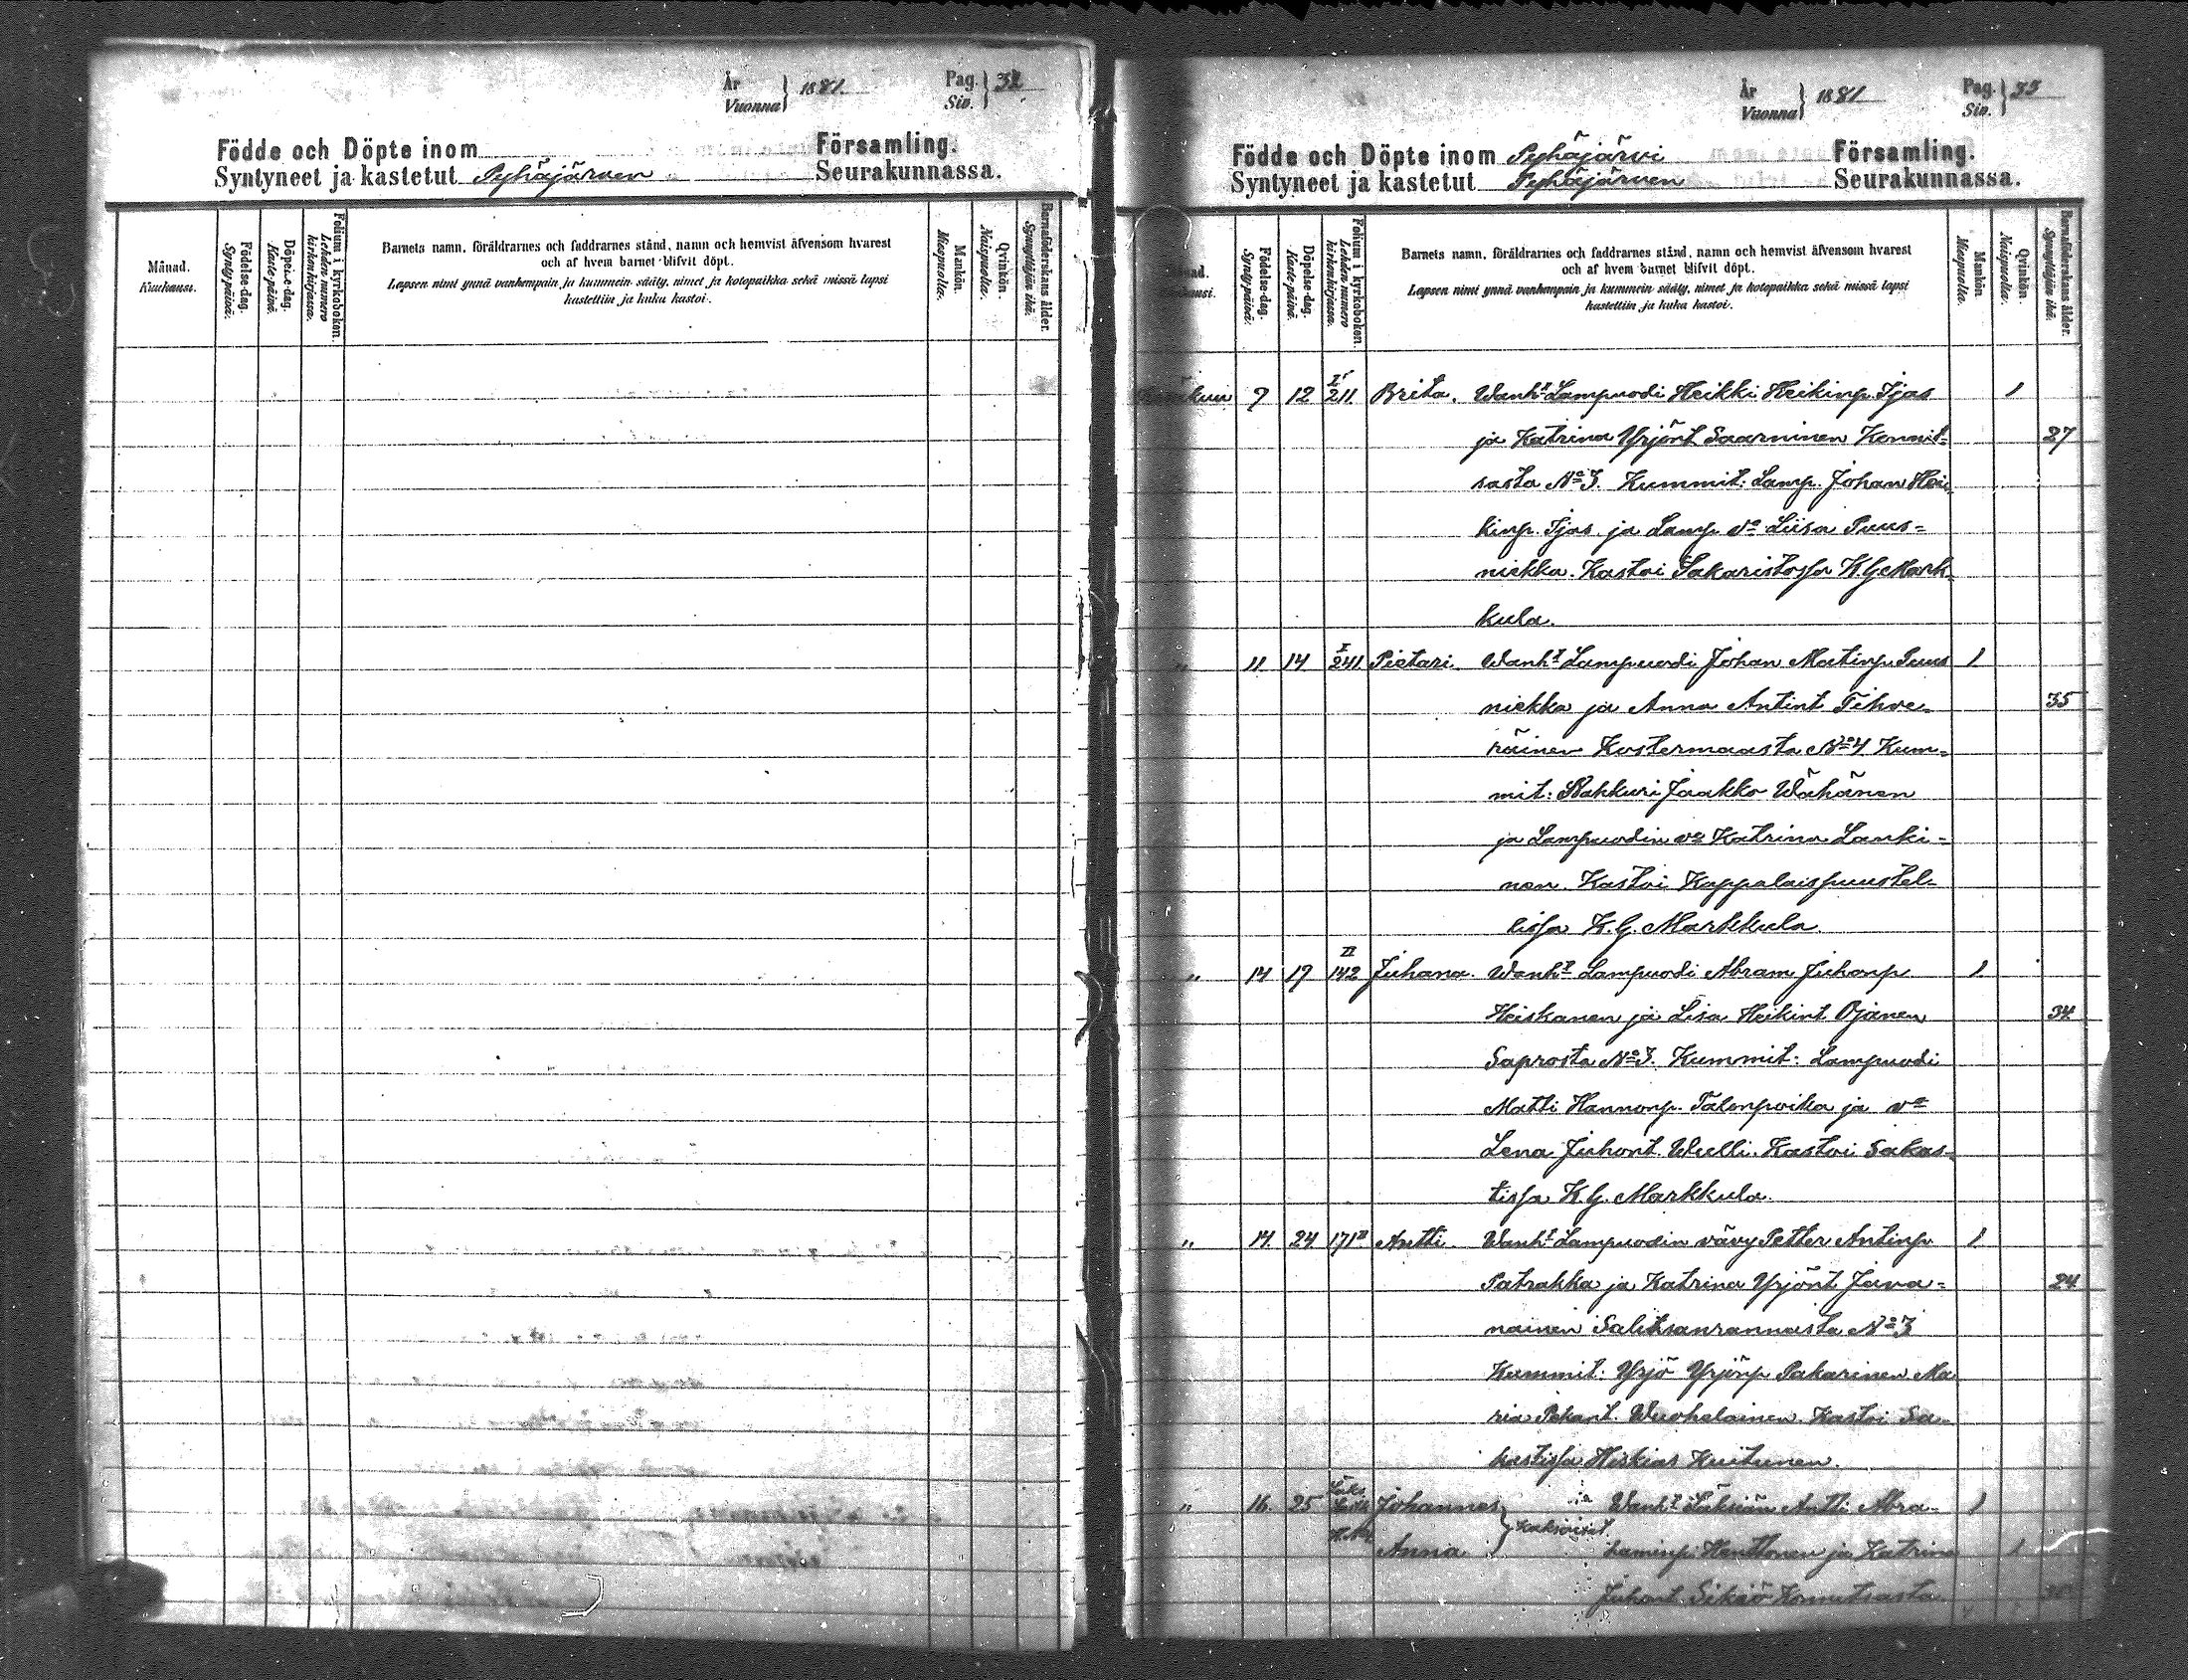 År
Vuonna } 1881.
Pag.
Siv. }
Födde och Döpte inom Församling.
Syntyneet ja kastetut Pyhäjärven Seurakunnassa.
Månad.
Kuukausi.
Födelse-dag.
Synty-päivä.
Döpelse-dag.
Kaste-päivä.
Folium i kyrkoboken.
Lehden numero
kirkonkirjassa.
Barnets namn, föräldrarnes och faddrarnes stånd, namn och hemvist äfvensom hvarest
och af hvem barnet blifvit döpt.
Lapsen nimi ynnä vanhempain ja kummein sääty, nimet ja kotopaikka sekä missä lapsi
kastettiin ja kuka kastoi.
Mankön.
Miespuolia.
Qvinkön.
Naispuolia.
Barnaföderskans ålder.
Synnyttäjän ikä.
År
Vuonna } 1881
Pag.
Siv. } 35
Födde och Döpte inom Pyhäjärvi Församling.
Syntyneet ja kastetut Pyhäjärven Seurakunnassa.
Födelse-dag.
Synty-päivä.
Döpelse-dag.
Kaste-päivä.
Folium i kyrkoboken.
Lehden numero
kirkonkirjassa.
Barnets namn, föräldrarnes och faddrarnes stånd, namn och hemvist äfvensom hvarest
och af hvem barnet blifvit döpt.
Lapsen nimi ynnä vanhempain ja kummein sääty, nimet ja kotopaikka sekä missä lapsi
kastettiin ja kuka kastoi.
Mankön.
Miespuolia.
Qvinkön.
Naispuolia.
Barnaföderskans ålder.
Synnyttäjän ikä.
9 12 I 211. Brita. Wanht Lampuodi Heikki Heikinp. Ijas 1
ja Katrina Yrjönt Saarninen Konnit= 27
sasta No 3. Kummit: Lamp. Johan Hei=
kinp. Ijas ja Lamp. va Liisa Puus=
niekka. Kastoi Sakaristossa K.G. Mark=
kula.
" 11 14 I 241 Pietari. Wanht Lampuodi Johan Matinp. Puus 1
niekka ja Anna Antint Tihve= 35
räinen Kostermaasta No 4 Kum=
mit: Rahkuri Jaakko Wähänen
ja Lampuodin va Katrina Lanki=
nen. Kastoi Kappalaispuustel=
lissa K.G. Markkula.
" 14 17 II 142 Juhana. Wanht Lampuodi Abram Juhonp 1
Heiskanen ja Lisa Heikint Ojanen 34
Saprosta No 3. Kummit: Lampuodi
Matti Hannonp. Talonpoika ja va
Lena Juhont. Wuelli. Kastoi Sakas=
tissa K.G. Markkula.
" 14. 24 171 II Antti. Wanht Lampuodin vävy Petter Antinp 1
Patrakka ja Katrina Yrjönt Java= 24
nainen Salitsanrannasta No 3
Kummit: Yrjö Yrjönp Pakarinen Ma
ria Pekant. Wuohelainen. Kastoi Sa=
kastissa Hiskias Kuitunen.
" 16. 25 Johannes ja Wanht Antti Abra= 1
Anna } Kaksoiset haminp. Henttonen ja Katrina 1
Juhont. Sikiö Konnitsasta